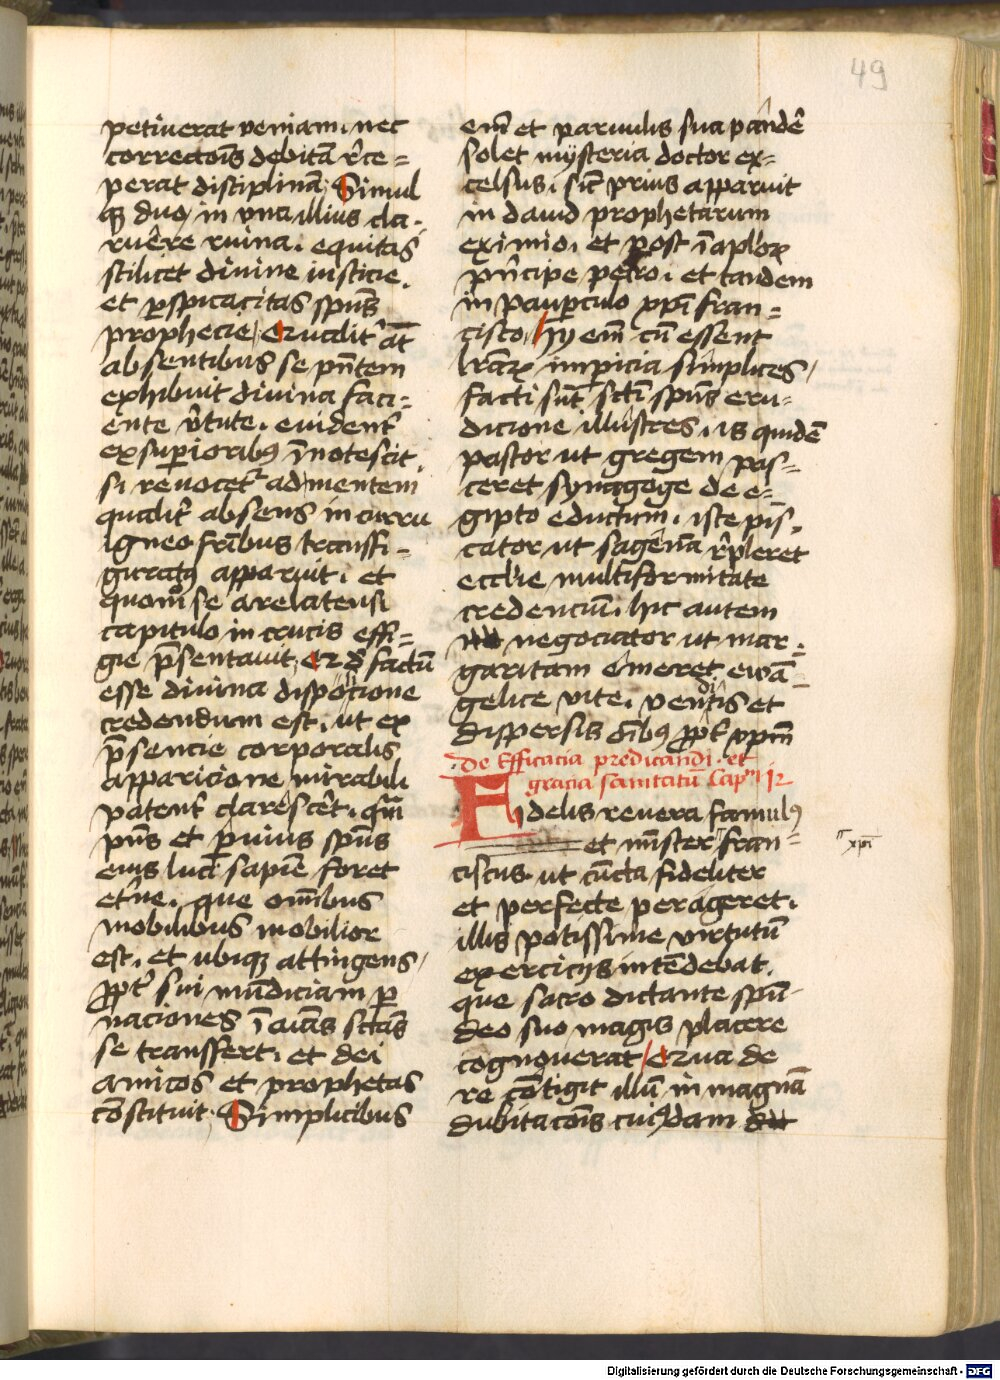 49
petiuerat veniam. nec
correctōis debitā r̄ce=
perat disciplinā. Simul
qꝫ duo in vna illius cla-
ruēre ruina. equitas
scilicet diuine iusticie.
et ꝑspicacitas spūs
prophecie. Qualit̓ āt
absentibus se pn̄tem
exhibuit diuina faci-
ente v̓tute. euident̓
ex suꝑioribꝰ īnotescit.
si reuocet᷑ ad mentem
qualit̓ absens in curru
igneo fr̄ibus transfi-
guratꝰ apparuit. et
quom̊ se arelatensi
capitulo in crucis effi-
gie p̄sentauit. Qd̓ factū
esse diuina disposicione
credendum est. ut ex
p̄sencie corporalis
apparicione mirabili
patent̓ claresc̄et. qm̄
pn̄s et ꝑuius spūs
eius luci sapiē foret
etn̄e. que om̄ibus
mobilibus mobilior
est. et ubiqꝫ attingens
ꝓpt̓ sui mūdiciam ꝑ
naciones ī aīas sctās
se transfert. et dei
amicos et prophetas
cōstituit. Simplicibus
em̄ et paruulis sua pandē
solet mÿsteria doctor ex-
celsus. sic̄ prius apparuit
in dauid prophetarum
eximio. et post ī aplo
pn̄cipe petro. et tandem
in pauꝑculo xp̄i fran-
cisco. Hÿ em̄ cū essent
lr̄aꝝ imꝑicia simplices
facti sūt sctī spūs eru-
dicione illustres. is quidē
pastor ut gregem pas-
ceret synagoge de e-
gipto eductum. iste pis-
cator ut sagēna r̄pleret
ecclie multiformitate
credencium. hic autem
negociator ut mar-
garitam emeret ewā-
gelice vite. venditis et
dispersis om̄ibꝰ ꝓpt̓ xpm̄
de Efficacia predicandi et
gracia sanitatū Capm̄ 12
Fidelis reuera famulꝰ
et mīster fran-
xp̄i
ciscus ut cūcta fideliter
et perfecte perageret.
illis potissime virtutū
exercicijs intēdebat.
que sacro dictante spū
deo suo magis placere
cognouerat. Qua de
re cōtigit illū in magnā
dubitacōis cuiꝰdam
Digitalisierung gefördert durch die Deutsche Forschungsgemeinschaft - DFG